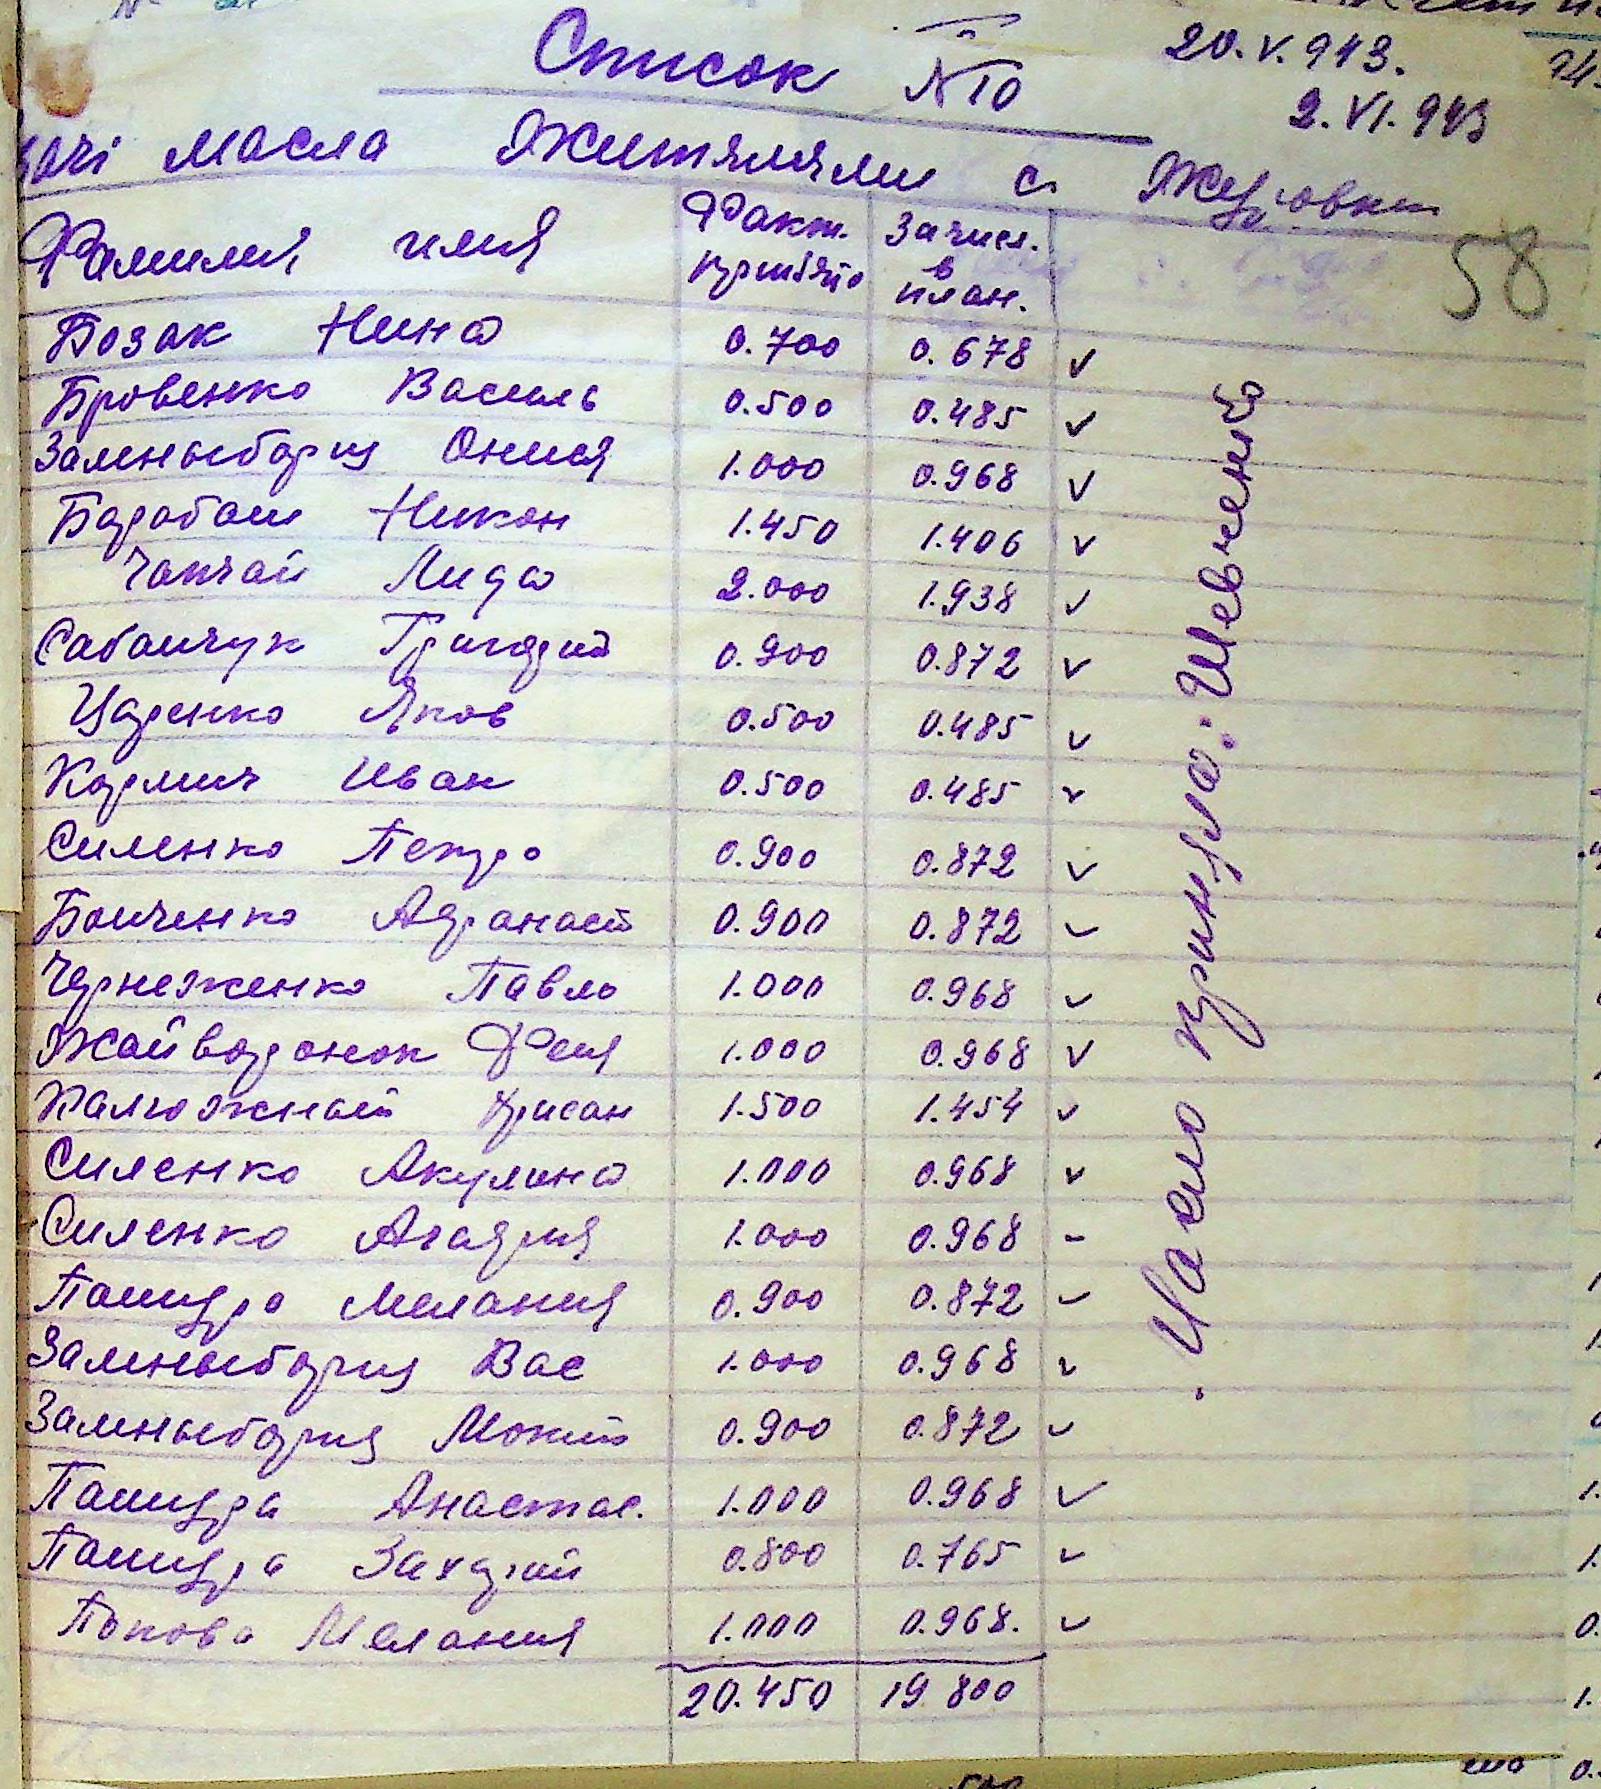 Список № 10
20.V.943.
2.VI.943
дачі масла Жителями с. Журовки
58
Фамилия, имя Факт. принято Зачисл. в план.
Бозак Нина 0.700 0.678 ✓
Бровенко Василь 0.500 0.485 ✓
Замныборщ Онися 1.000 0.968 ✓
Барабаш Никон 1.450 1.406 ✓
Чапчай Лида 2.000 1.938 ✓
Сабанчук Григорий 0.900 0.872 ✓
Царенко Яков 0.500 0.485 ✓
Кармич Иван 0.500 0.485 ✓
Силенко Петро 0.900 0.872 ✓
Бойченко 0.900 0.872 ✓
Чернеженко Павло 1.000 0.968 ✓
Жайворонок Феня 1.000 0.968 ✓
Калюжный 1.500 1.454 ✓
Силенко Акулина 1.000 0.968 ✓
Силенко Агафия 1.000 0.968 -
Пашура Мелания 0.900 0.872 ✓
Замныборщ Вас 1.000 0.968 ✓
Замныборщ Мокий 0.900 0.872 ✓
Пашура Анастас. 1.000 0.968 ✓
Пашура Захарий 0.800 0.765 ✓
Попова Мелания 1.000 0.968. ✓
20.450 19 800
Масло приняла: Шевченко